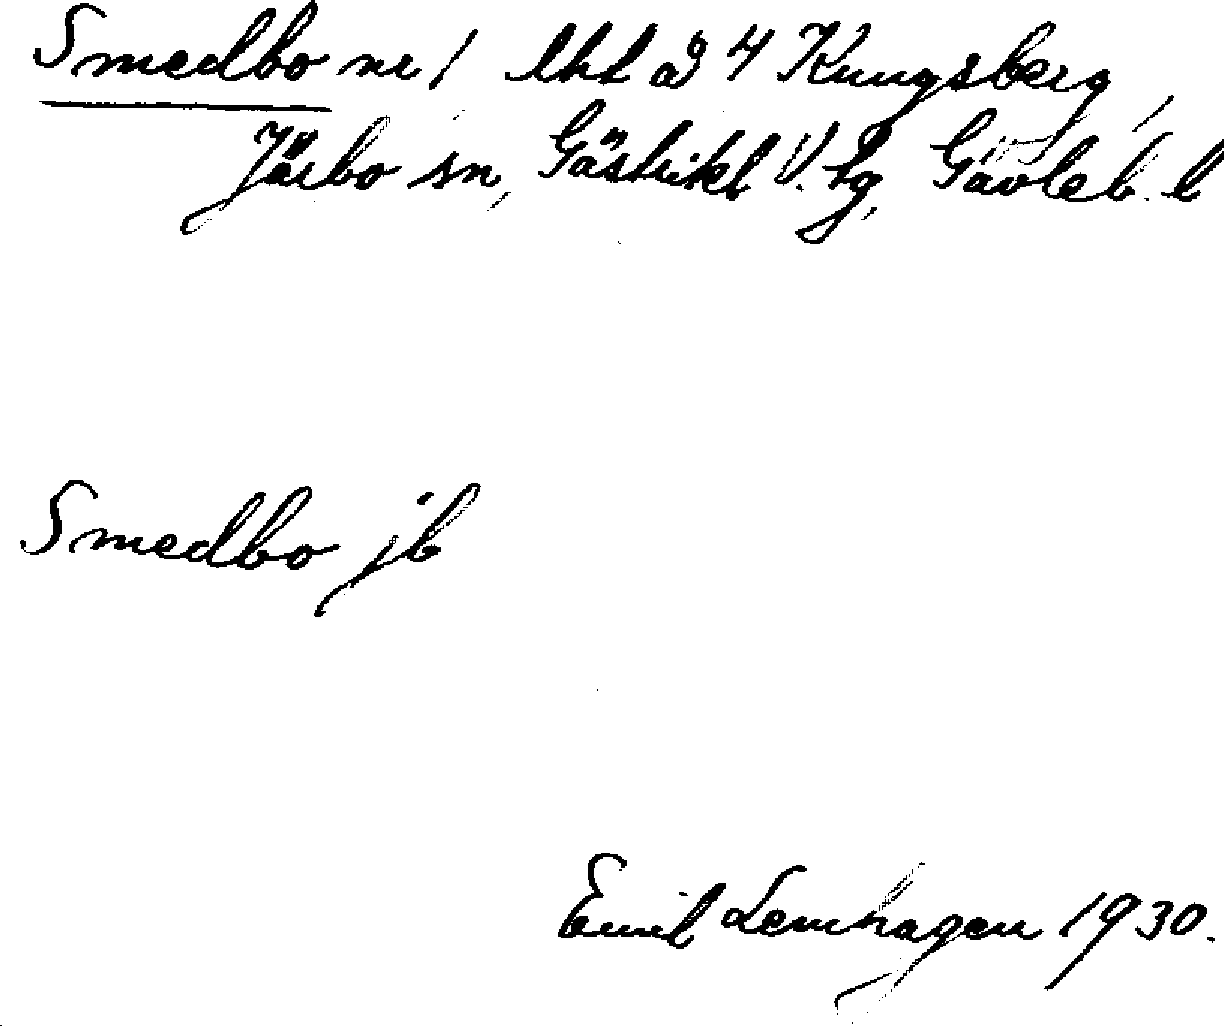 Smedbo nr 1 lht å 4 Kungsberg,
Järbo sn, Gästrikl V. tg, Gävleb. l
Smedbo jb
Emil Lemhagen 1930.